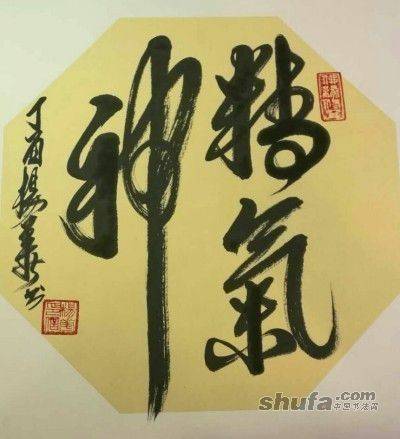 精氣
神
丁酉楊
shufa.com
中国书法网